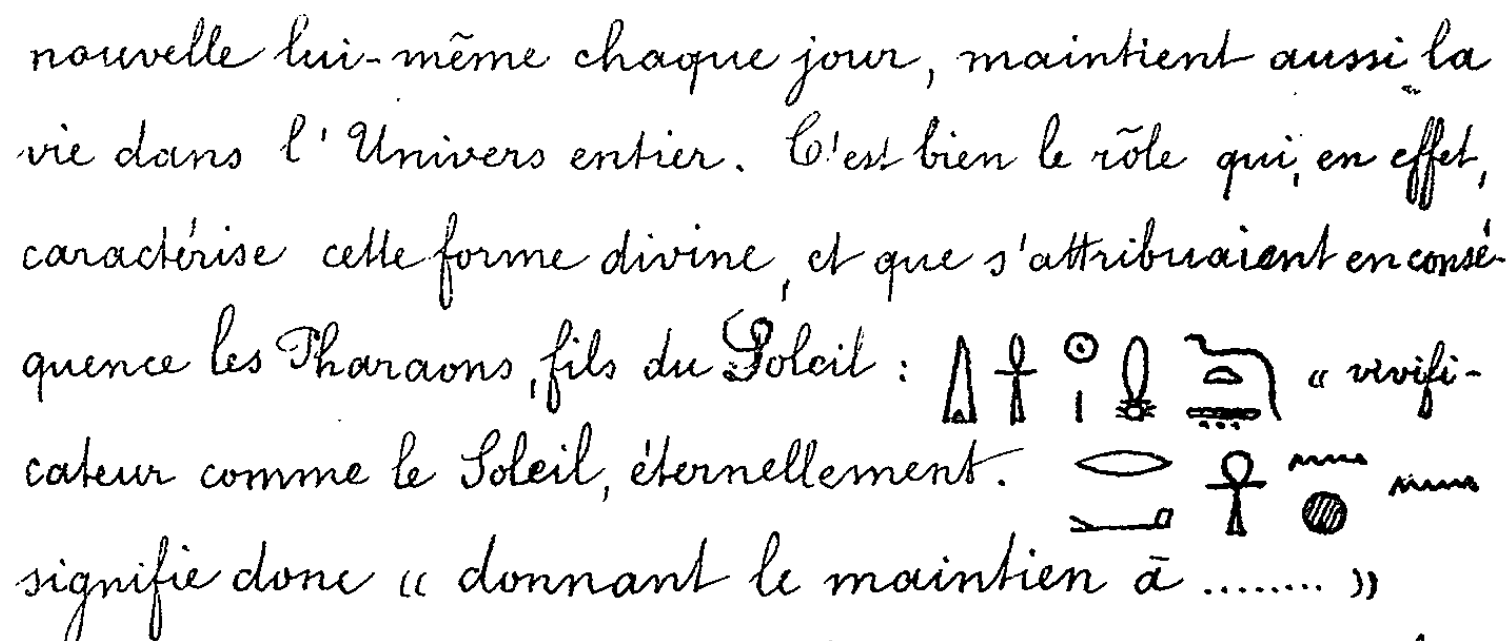 nouvelle lui-même chaque jour, maintient aussi la
vie dans l'Univers entier. C'est bien le rôle qui, en effet,
caractérise cette forme divine, et que s'attribuaient en consé-
quence les Pharaons, fils du Soleil : « vivifi-
cateur comme le Soleil, éternellement.
signifie donc « donnant le maintien à ........ »